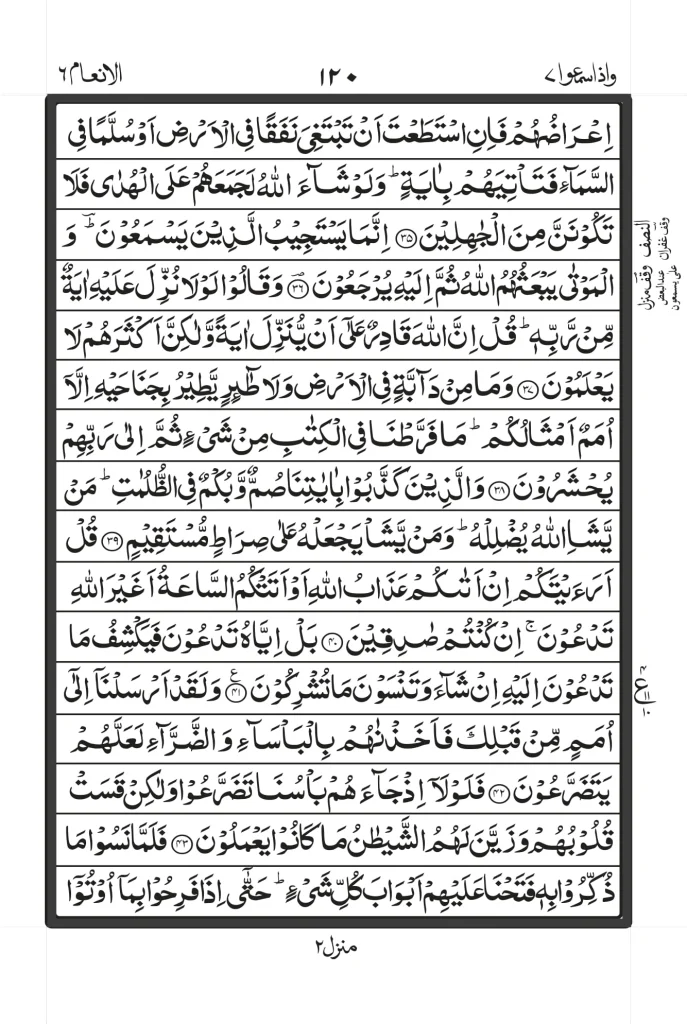 واذاسمعوا ٧ ١٢٠ الانعام ٦
اِعْرَاضُهُمْ فَاِنِ اسْتَطَعْتَ اَنْ تَبْتَغِیَ نَفَقًا فِی الْاَرْضِ اَوْ سُلَّمًا فِی
السَّمَآءِ فَتَاْتِیَهُمْ بِاٰیَةٍ ؕ وَلَوْ شَآءَ اللّٰهُ لَجَمَعَهُمْ عَلَی الْهُدٰی فَلَا
تَكُوْنَنَّ مِنَ الْجٰهِلِیْنَ ﴿۳۵﴾ اِنَّمَا یَسْتَجِیْبُ الَّذِیْنَ یَسْمَعُوْنَ ؕ وَ
الْمَوْتٰی یَبْعَثُهُمُ اللّٰهُ ثُمَّ اِلَیْهِ یُرْجَعُوْنَ ﴿۳۶﴾ وَقَالُوْا لَوْلَا نُزِّلَ عَلَیْهِ اٰیَةٌ
مِّنْ رَّبِّهٖ ؕ قُلْ اِنَّ اللّٰهَ قَادِرٌ عَلٰۤی اَنْ یُّنَزِّلَ اٰیَةً وَّلٰكِنَّ اَكْثَرَهُمْ لَا
یَعْلَمُوْنَ ﴿۳۷﴾ وَمَا مِنْ دَآبَّةٍ فِی الْاَرْضِ وَلَا طٰٓىِٕرٍ یَّطِیْرُ بِجَنَاحَیْهِ اِلَّاۤ
اُمَمٌ اَمْثَالُكُمْ ؕ مَا فَرَّطْنَا فِی الْكِتٰبِ مِنْ شَیْءٍ ثُمَّ اِلٰی رَبِّهِمْ
یُحْشَرُوْنَ ﴿۳۸﴾ وَالَّذِیْنَ كَذَّبُوْا بِاٰیٰتِنَا صُمٌّ وَّبُكْمٌ فِی الظُّلُمٰتِ ؕ مَنْ
یَّشَاِ اللّٰهُ یُضْلِلْهُ ؕ وَمَنْ یَّشَاْ یَجْعَلْهُ عَلٰی صِرَاطٍ مُّسْتَقِیْمٍ ﴿۳۹﴾ قُلْ
اَرَءَیْتَكُمْ اِنْ اَتٰىكُمْ عَذَابُ اللّٰهِ اَوْ اَتَتْكُمُ السَّاعَةُ اَغَیْرَ اللّٰهِ
تَدْعُوْنَ ۚ اِنْ كُنْتُمْ صٰدِقِیْنَ ﴿۴۰﴾ بَلْ اِیَّاهُ تَدْعُوْنَ فَیَكْشِفُ مَا
تَدْعُوْنَ اِلَیْهِ اِنْ شَآءَ وَتَنْسَوْنَ مَا تُشْرِكُوْنَ ﴿۴۱﴾ وَلَقَدْ اَرْسَلْنَاۤ اِلٰۤی
اُمَمٍ مِّنْ قَبْلِكَ فَاَخَذْنٰهُمْ بِالْبَاْسَآءِ وَالضَّرَّآءِ لَعَلَّهُمْ
یَتَضَرَّعُوْنَ ﴿۴۲﴾ فَلَوْلَاۤ اِذْ جَآءَهُمْ بَاْسُنَا تَضَرَّعُوْا وَلٰكِنْ قَسَتْ
قُلُوْبُهُمْ وَزَیَّنَ لَهُمُ الشَّیْطٰنُ مَا كَانُوْا یَعْمَلُوْنَ ﴿۴۳﴾ فَلَمَّا نَسُوْا مَا
ذُكِّرُوْا بِهٖ فَتَحْنَا عَلَیْهِمْ اَبْوَابَ كُلِّ شَیْءٍ ؕ حَتّٰۤی اِذَا فَرِحُوْا بِمَاۤ اُوْتُوْۤا
النصف
وقف منزل
وقف غفران
عند البعض
علی یسمعون
ع
منزل ٢